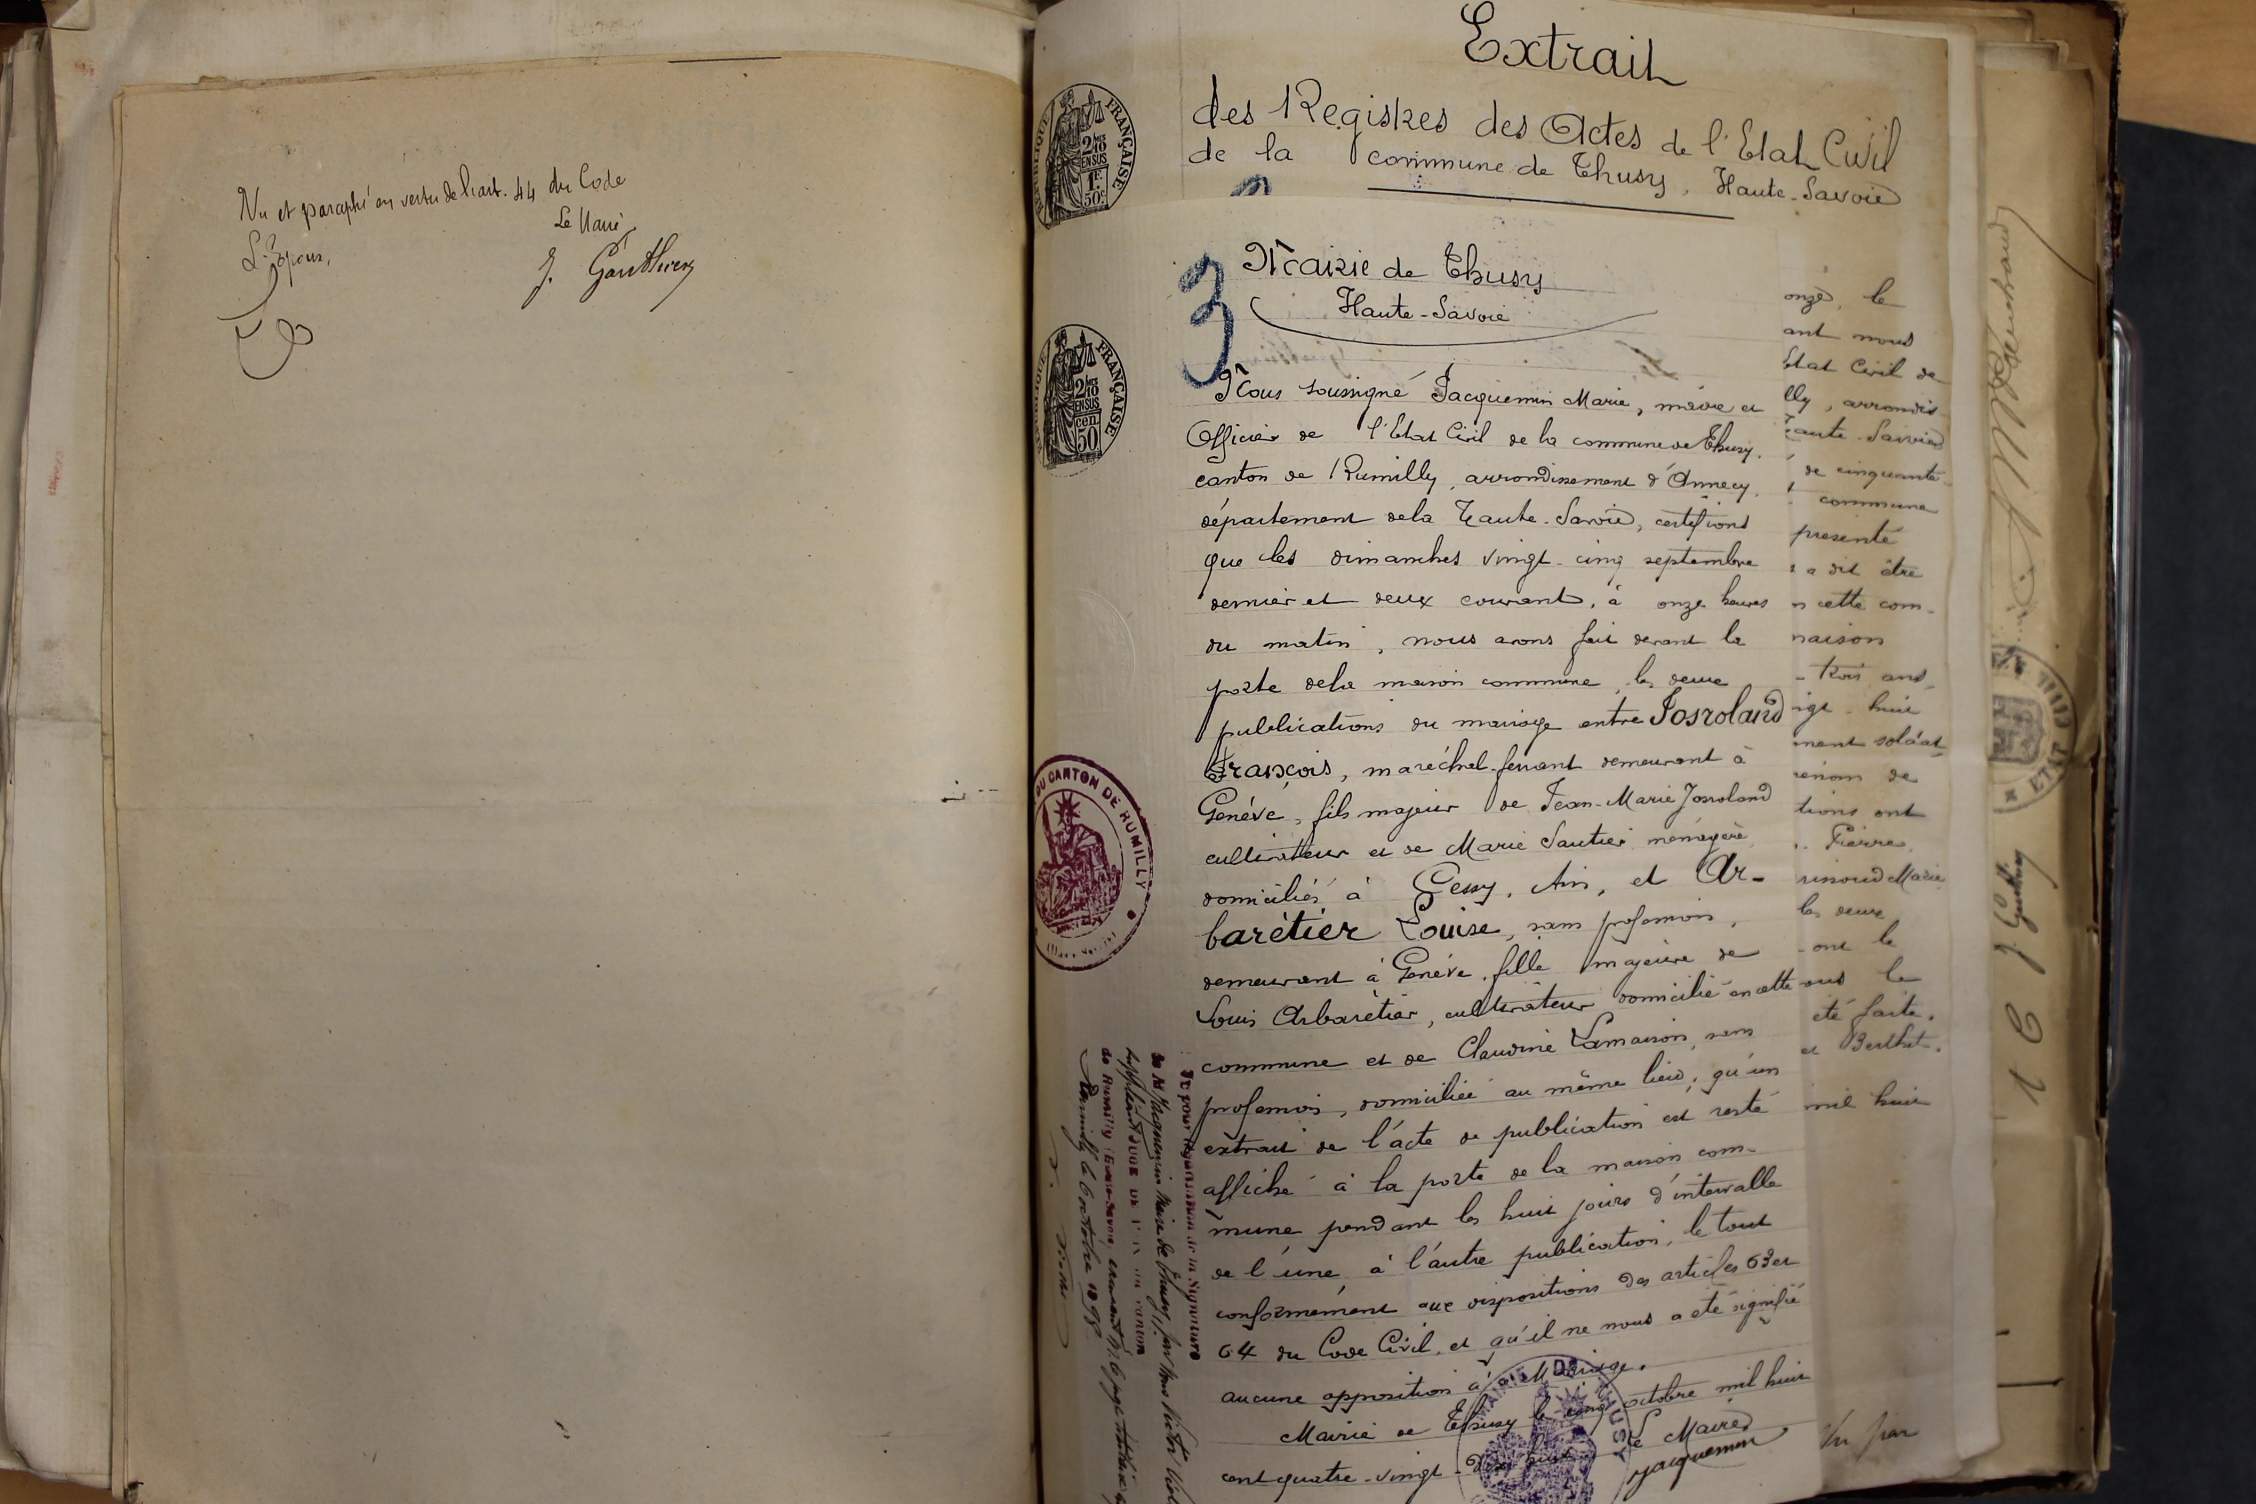 Vu et paraphé en vertu de l'art. 44 du Code
Le Maire
L'Epoux,
J. Gauthier
Extrait
des Registres des Actes de l'Etat Civil
de la commune de Thusy, Haute-Savoie
RÉPUBLIQUE FRANÇAISE
2/10 EN SUS
1F. 50c
3
Mairie de Thusy
Haute-Savoie
RÉPUBLIQUE FRANÇAISE
2/10 EN SUS
cen. 50
Nous soussigné Jacquemin Marie, maire et
Officier de l'Etat Civil de la commune de Thusy,
canton de Rumilly, arrondissement d'Annecy,
département de la Haute-Savoie, certifions
que les dimanches vingt-cinq septembre
dernier et deux courant, à onze heures
du matin, nous avons fait devant la
porte de la maison commune, les deux
publications du mariage entre Josroland
François, maréchal-ferrant demeurant à
Genève, fils majeur de Jean-Marie Josroland
cultivateur et de Marie Sautier ménagère
domiciliés à Gessy, Ain, et Ar-
barétier Louise, sans profession,
demeurant à Genève, fille majeure de
Louis Arbarétier, cultivateur domicilié en cette
commune et de Claudine Lamaison, sans
profession, domiciliée au même lieu; qu'un
extrait de l'acte de publication est resté
affiché à la porte de la maison com-
mune pendant les huit jours d'intervalle
de l'une à l'autre publication, le tout
conformément aux dispositions des articles 63 et
64 du Code Civil, et qu'il ne nous a été signifié
aucune opposition à ce Mariage.
Mairie de Thusy le cinq octobre mil huit
cent quatre-vingt-dix huit
Le Maire
Jacquemin
onze, le
ant nous
Etat Civil de
lly, arrondis-
Haute-Savoie
de cinquante
commune
présenté
a dit être
n cette com-
maison
trois ans,
vingt-huit
ment soldat
rénom de
tions ont
Pierre,
Marie
les deux
ont le
ous le
été faite.
et Berthet.
mil huit
Vu par
DU CANTON DE RUMILLY
pour légalisation de la Signature
de M. Jacquemin Maire de Thusy, par nous Victor
suppléant JUGE DE PAIX du canton
de Rumilly (Haute-Savoie)
Rumilly le 6 octobre 1898
MAIRIE DE THUSY
ETAT CIVIL
J. Gauthier